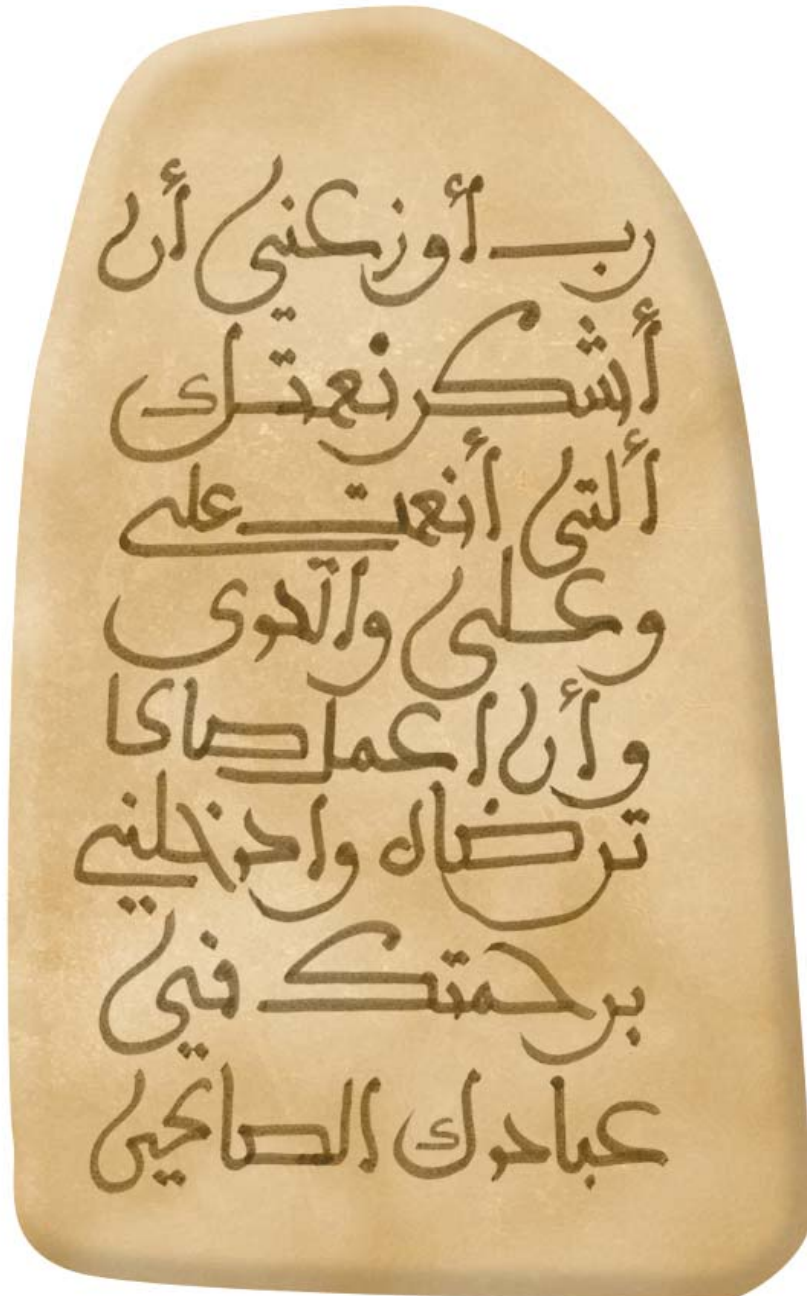 رب أوزعني أن
أشكر نعمتك
ألتي أنعمت على
وعلى والدى
وأن اعمل صالحا
ترضاه وادخلني
برحمتك في
عبادك الصالحين